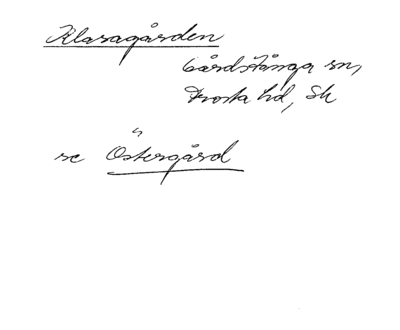 Klasagården
Gårdstånga sn,
Frosta hd, Sk
se Östergård